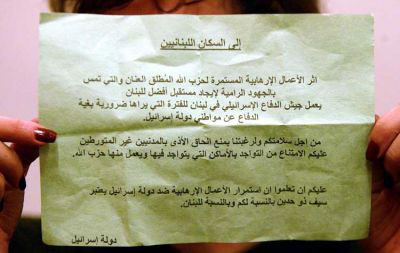 إلى السكان اللبنانيين
اثر الأعمال الإرهابية المستمرة لحزب الله المُطلق العنان والتي تمس
بالجهود الرامية لإيجاد مستقبل أفضل للبنان
يعمل جيش الدفاع الإسرائيلي في لبنان للفترة التي يراها ضرورية بغية
الدفاع عن مواطني دولة إسرائيل.
من اجل سلامتكم ولرغبتنا بمنع الحاق الأذى بالمدنيين غير المتورطين
عليكم الامتناع عن التواجد بالأماكن التي يتواجد فيها ويعمل منها حزب الله.
عليكم ان تعلموا ان استمرار الأعمال الإرهابية ضد دولة إسرائيل يعتبر
سيف ذو حدين بالنسبة لكم وبالنسبة للبنان.
دولة إسرائيل